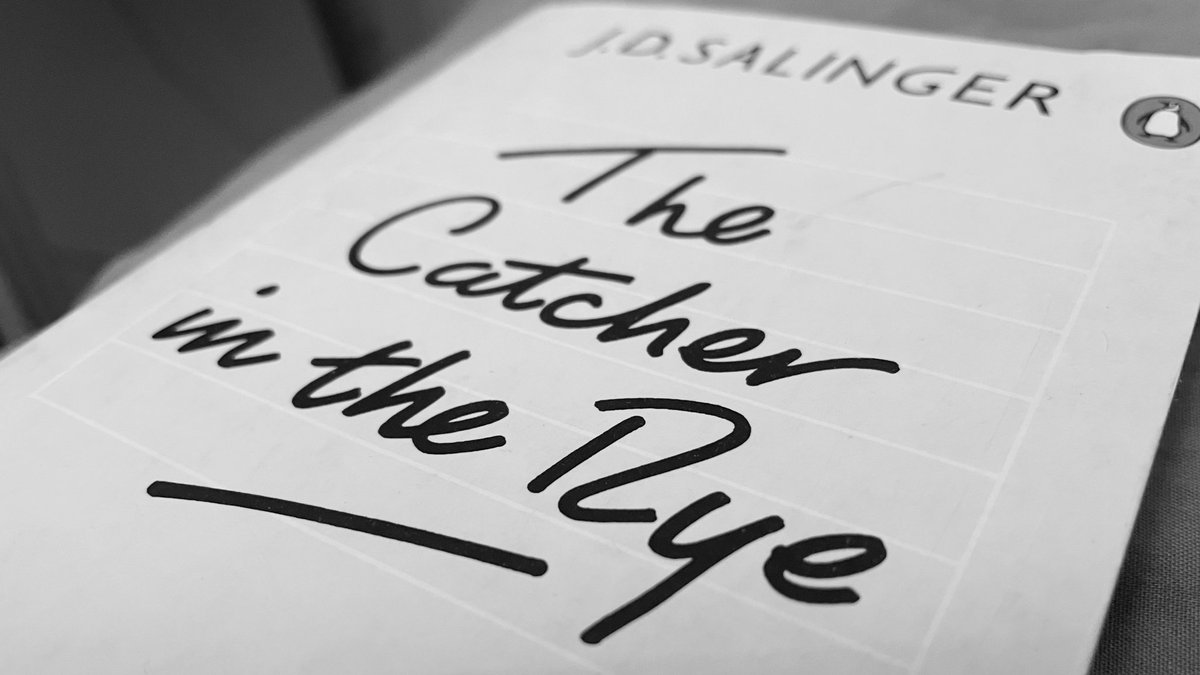 J.D. SALINGER
The
Catcher
in the Rye